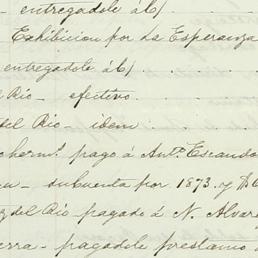 entregadole á
Exhibicion por La Esperanza
entregadole á
Rio - efectivo
del Rio - idem
pagó á Ant.º Escando
subcuenta por 1873. y
del Rio - pagado á N. Alvare
erra - pagadole prestamo